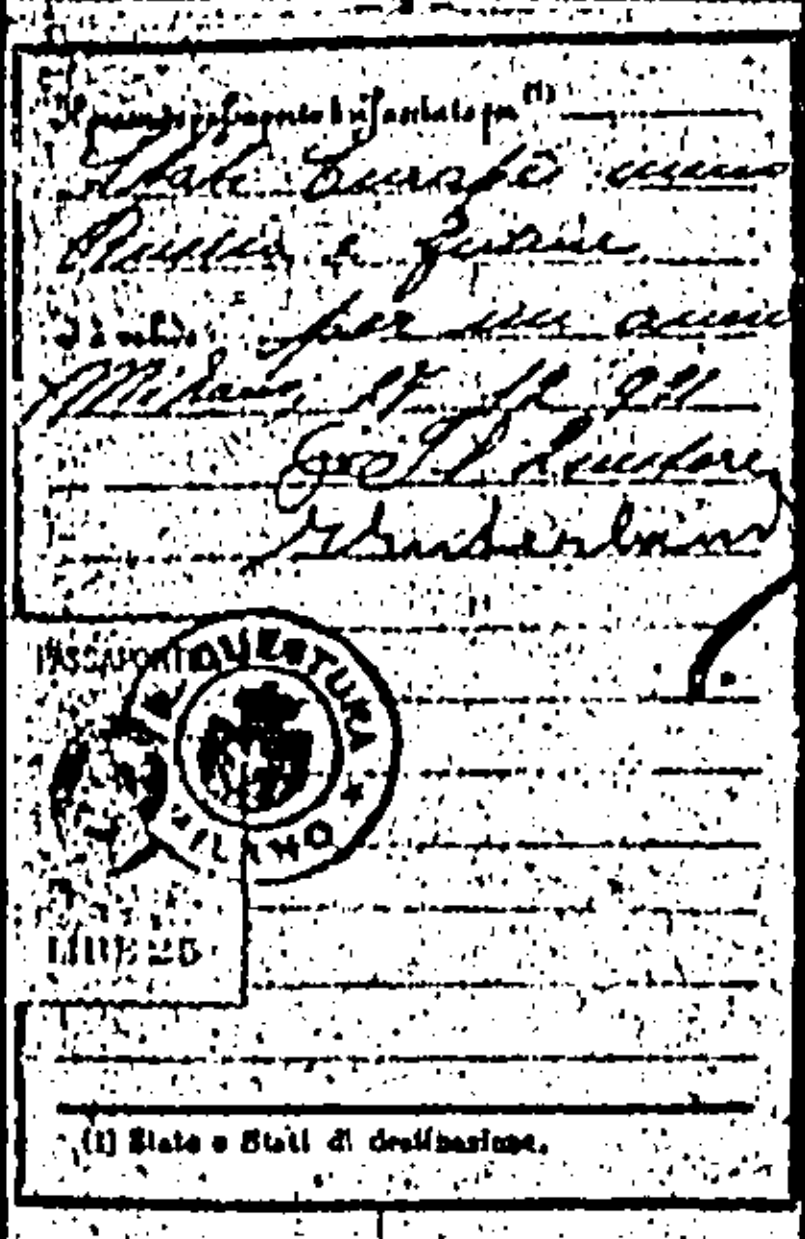 Il presente passaporto è rilasciato per (1)
Stati Europei meno
Russia e
ed è valido per un anno
Milano, 27 12 921
Questore
PASSAPORTI
R. QUESTURA
MILANO
LIRE 25
(1) Stato o Stati di destinazione.